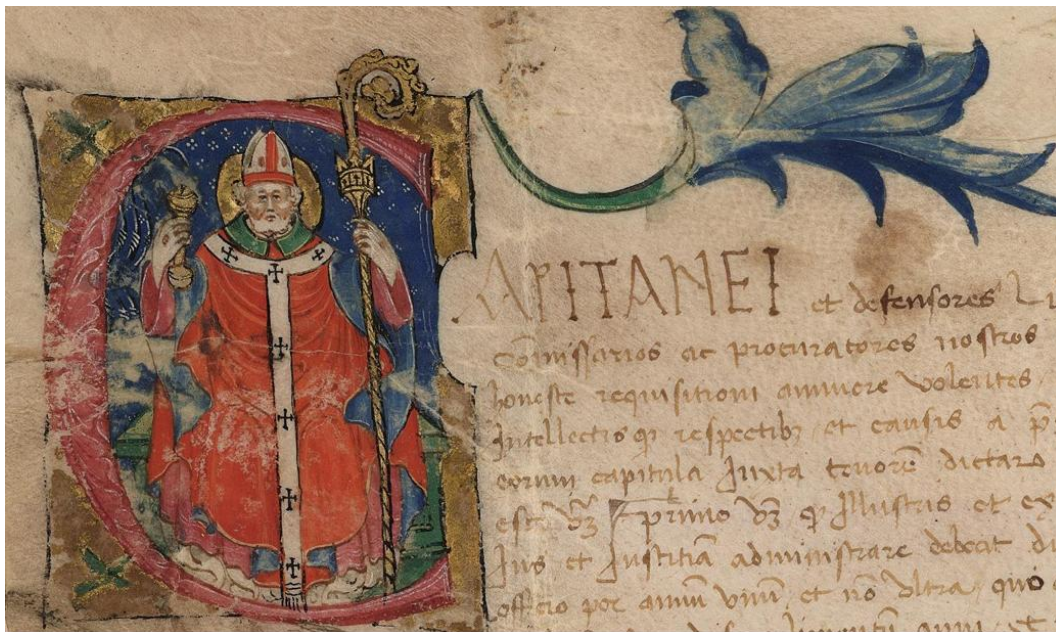 CAPITANEI et defensores Li
Cōmissarios ac procuratores nostros
honeste requisitioni annuere volentes
Intellectis qꝫ respectibꝫ et causis a p̄
eorum capitula Juxta tenorē
est vꝫ primo vꝫ ꝙ Illustris et ex
Jus et Justitiā administrare debeat di
offitio per annum vnum et nō vltra, quo
anni et